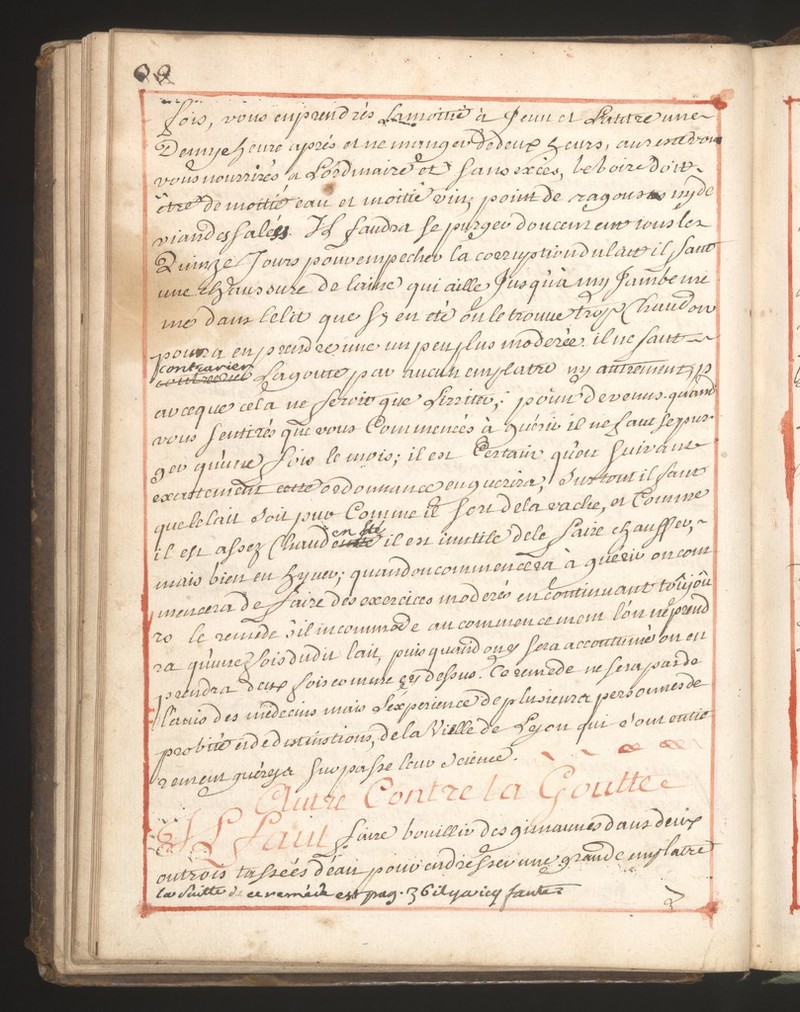 fois, vous en prendrés la moitié à Jeun et l'autre une
Demye heure aprés et ne manger de deux heurs, au reste vous
vous nourrirés a l'ordinaire et sans excès, le boire doit
être de moitié eau et moitié vin; point de ragousts ny de
viandes salées. Il faudra se purger doucement tous les
Quinze Jours pour empecher la corruption du lait il faut
une chaussure de laine qui aille Jusqu'à my Jambe me
me dans le lit que sy en eté on le trouve trop Chaud on
pourra en prendre une un peu plus moderée. il ne faut
contrarier
la goutte par aucun emplatre ny autrement, p
arceque cela ne feroit que l'irriter; point de venus. quand
vous sentirés que vous Commencés à guérir il ne faut se pur
ger qu'une fois le mois; il est Certain qu'en suivant
exactement cette ordonnance on guerira, Surtout il faut
que le lait soit pur Comme il sort de la vache, et Comme
en été
il est assez Chaud il est inutile de le faire chauffer,
mais bien en hyver; quand on commencera à guérir on com
mencera de faire des exercices moderés en continuant toûjou
rs le remède s'il incommode au commencement l'on ne prend
ra qu'une fois dudit lait, puis quand on y sera accoutumé on en
prendra deux fois comme cy dessus. Ce remede ne sera pas de
l'avis des médecins mais l'experience de plusieurs personnes de
probité et de distinctions, de la Ville de Lyon qui sont entie
rement guéryes surpasse leur Science.
Autre Contre la Goutte
Il Faut faire bouillir des guimauves dans deux
ou trois tassées d'eau pour en dresser une grande emplatre
la suitte de ce remède est pag. 36 il y a icy faute